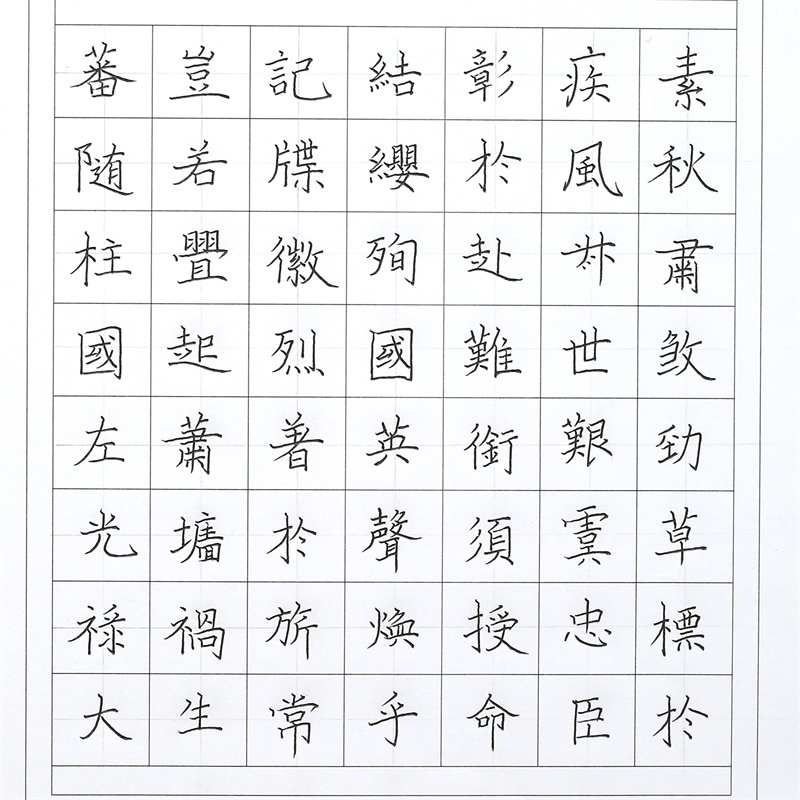 素秋肅煞勁草標於
疾風叔世艱虞忠臣
彰於赴難銜須授命
結纓殉國英聲煥乎
記牒徽烈著於旂常
豈若舋起蕭墻禍生
蕃随柱國左光祿大